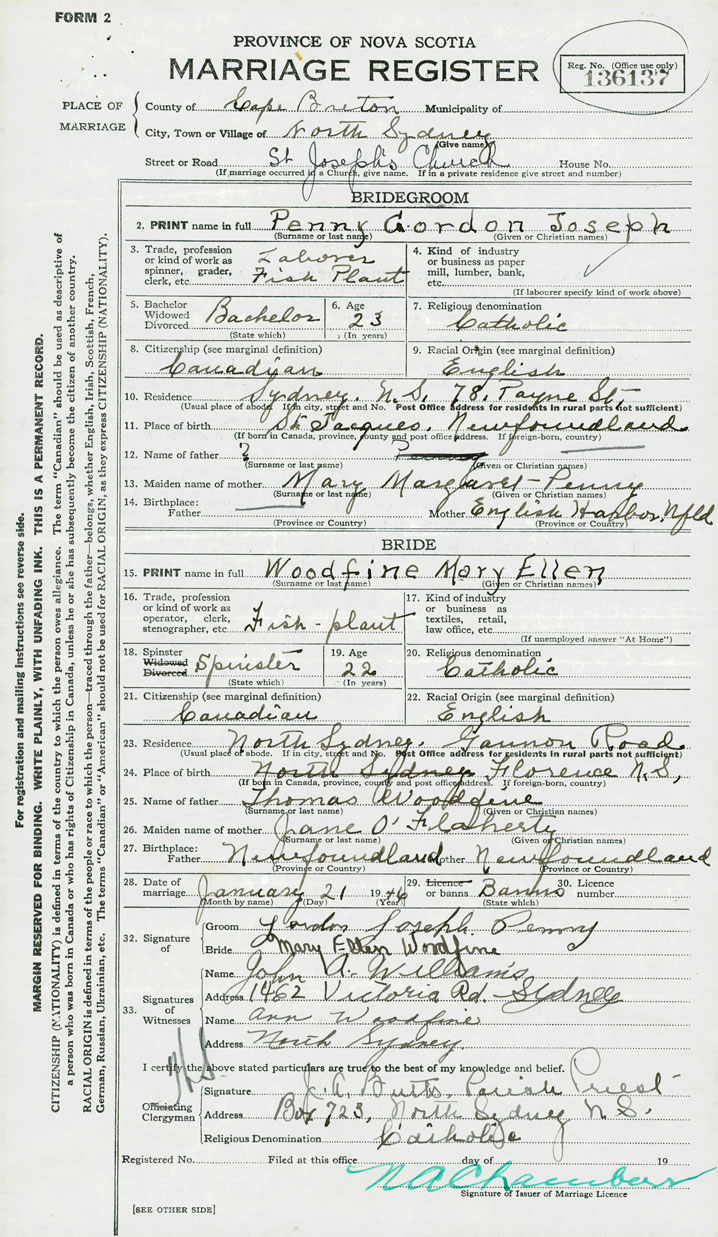 FORM 2
PROVINCE OF NOVA SCOTIA
MARRIAGE REGISTER
Reg. No. (Office use only)
136137
PLACE OF MARRIAGE
County of Cape Breton Municipality of
City, Town or Village of North Sydney
(Give name)
Street or Road St Joseph's Church House No.
(If marriage occurred in a Church, give name. If in a private residence give street and number)
BRIDEGROOM
2. PRINT name in full Penny Gordon Joseph
(Surname or last name) (Given or Christian names)
3. Trade, profession or kind of work as spinner, grader, clerk, etc. Laborer Fish Plant
4. Kind of industry or business as paper mill, lumber, bank, etc.
(If labourer specify kind of work above)
5. Bachelor Widowed Divorced Bachelor
(State which)
6. Age 23
(In years)
7. Religious denomination Catholic
8. Citizenship (see marginal definition) Canadian
9. Racial Origin (see marginal definition) English
10. Residence Sydney. N.S. 78. Payne St,
(Usual place of abode. If in city, street and No. Post Office address for residents in rural parts not sufficient)
11. Place of birth St. Jacques, Newfoundland
(If born in Canada, province, county and post office address. If foreign-born, country)
12. Name of father ? Penny
(Surname or last name) (Given or Christian names)
13. Maiden name of mother Mary Margaret-Penny
(Surname or last name) (Given or Christian names)
14. Birthplace: Father Mother English Harbor, Nfld
(Province or Country) (Province or Country)
BRIDE
15. PRINT name in full Woodfine Mary Ellen
(Surname or last name) (Given or Christian names)
16. Trade, profession or kind of work as operator, clerk, stenographer, etc. Fish-plant
17. Kind of industry or business as textiles, retail, law office, etc.
(If unemployed answer "At Home")
18. Spinster Widowed Divorced Spinster
(State which)
19. Age 22
(In years)
20. Religious denomination Catholic
21. Citizenship (see marginal definition) Canadian
22. Racial Origin (see marginal definition) English
23. Residence North Sydney. Gannon Road
(Usual place of abode. If in city, street and No. Post Office address for residents in rural parts not sufficient)
24. Place of birth North Sydney Florence N.S,
(If born in Canada, province, county and post office address. If foreign-born, country)
25. Name of father Thomas Woodfine
(Surname or last name) (Given or Christian names)
26. Maiden name of mother Jane O'Flaherty
(Surname or last name) (Given or Christian names)
27. Birthplace: Father Newfoundland Mother Newfoundland
(Province or Country) (Province or Country)
28. Date of marriage January 21 1946
(Month by name) (Day) (Year)
29. Licence or banns Banns
(State which)
30. Licence number
32. Signature of
Groom Gordon Joseph Penny
Bride Mary Ellen Woodfine
33. Signatures of Witnesses
Name John A. Williams
Address 1462 Victoria Rd. Sydney
Name Ann Woodfine
Address North Sydney.
I certify the above stated particulars are true to the best of my knowledge and belief.
Officiating Clergyman
Signature J. A. Butts Parish Priest
Address Box 723, North Sydney N.S.
Religious Denomination Catholic
Registered No. Filed at this office day of 19
N A Chambers
Signature of Issuer of Marriage Licence
[SEE OTHER SIDE]
For registration and mailing instructions see reverse side.
MARGIN RESERVED FOR BINDING. WRITE PLAINLY, WITH UNFADING INK. THIS IS A PERMANENT RECORD.
CITIZENSHIP (NATIONALITY) is defined in terms of the country to which the person owes allegiance. The term "Canadian" should be used as descriptive of
a person who was born in Canada or who has rights of Citizenship in Canada, unless he or she has subsequently become the citizen of another country.
RACIAL ORIGIN is defined in terms of the people or race to which the person—traced through the father—belongs, whether English, Irish, Scottish, French,
German, Russian, Ukrainian, etc. The terms "Canadian" or "American" should not be used for RACIAL ORIGIN, as they express CITIZENSHIP (NATIONALITY).